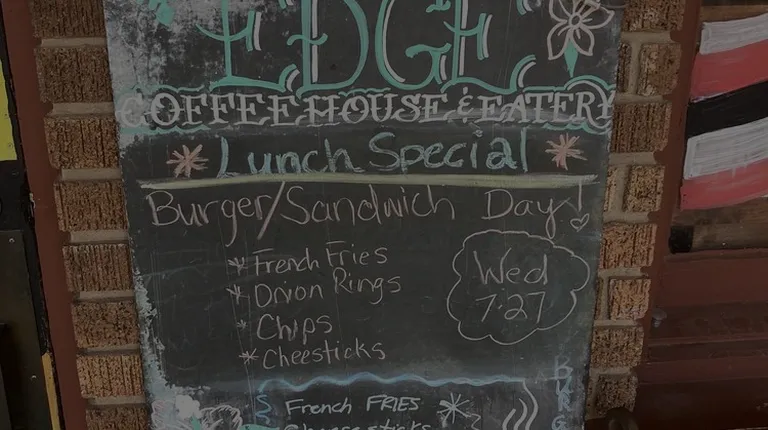 EDGE
COFFEE HOUSE & EATERY
Lunch Special
Burger/Sandwich Day!
* French Fries
* Onion Rings
* Chips
* Cheesticks
Wed
7-27
French FRIES